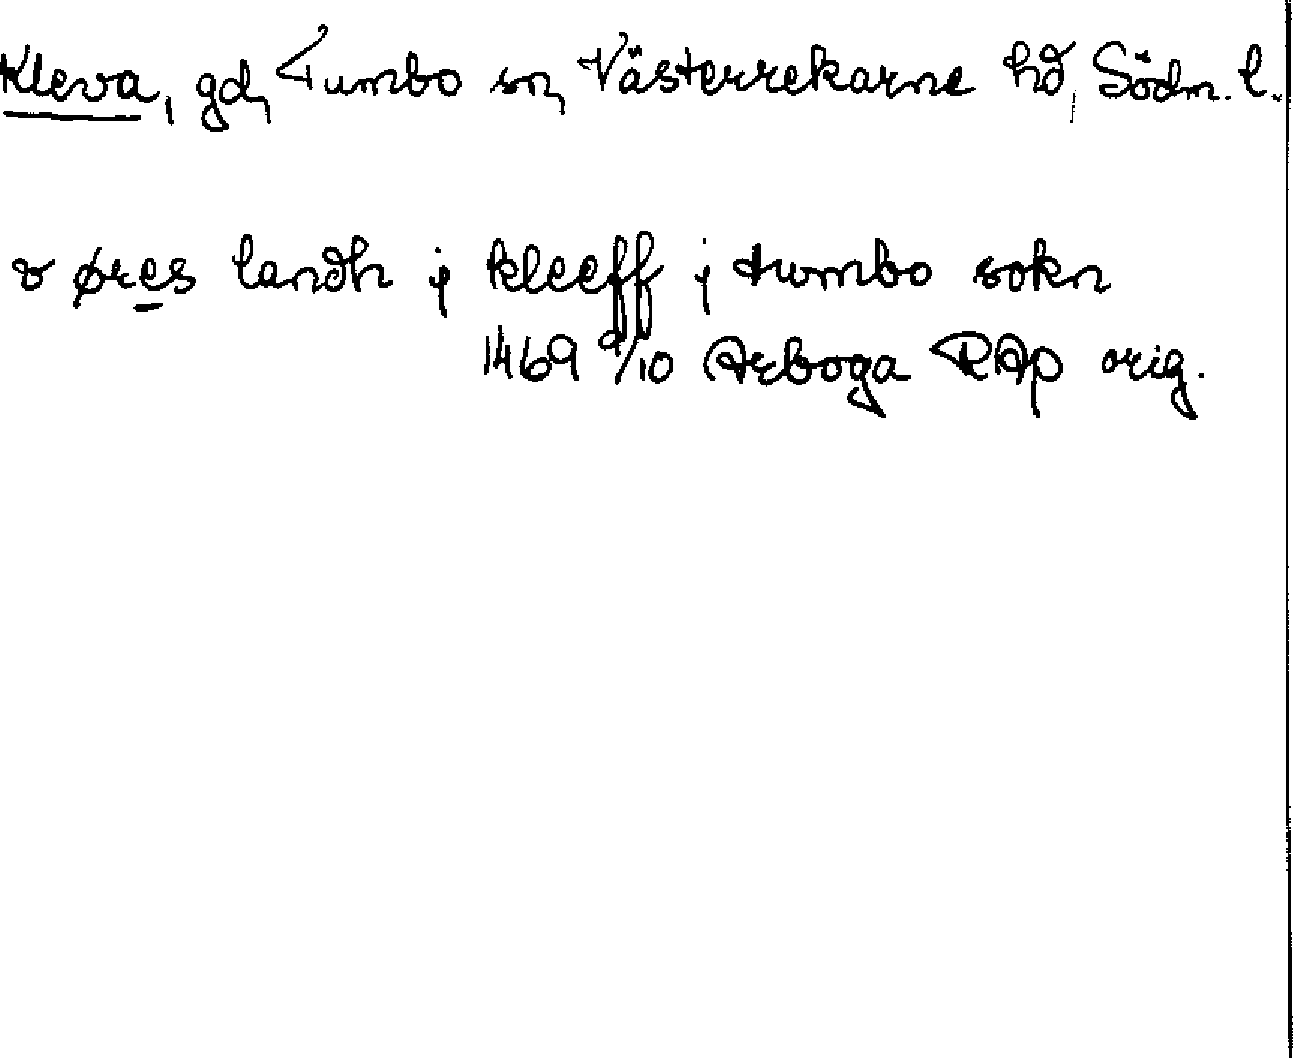 Kleva, gd, Tumbo sn, Västerrekarne hd, Södm. l.
v øres landh j kleeff j tumbo sokn
1469 9/10 Arboga RAp orig.